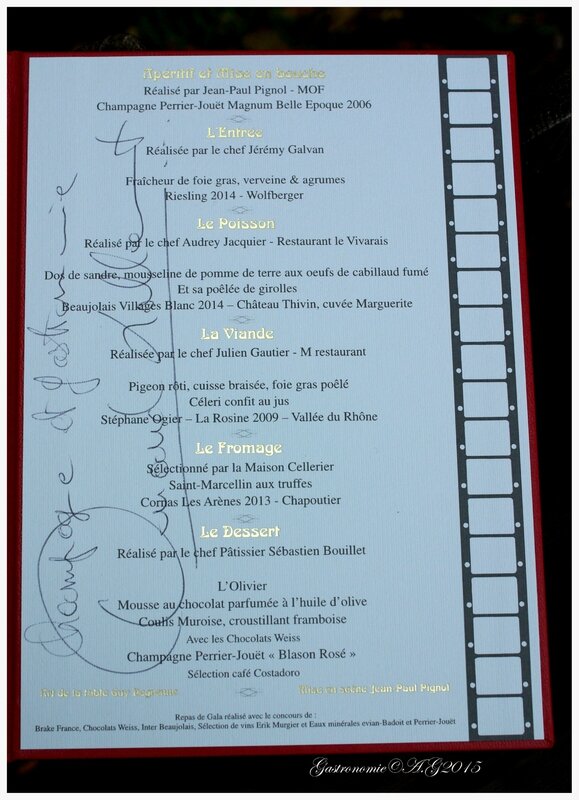 Apéritif et Mise en bouche
Réalisé par Jean-Paul Pignol - MOF
Champagne Perrier-Jouët Magnum Belle Epoque 2006
L'Entrée
Réalisée par le chef Jérémy Galvan
Fraîcheur de foie gras, verveine & agrumes
Riesling 2014 - Wolfberger
Le Poisson
Réalisé par le chef Audrey Jacquier - Restaurant le Vivarais
Dos de sandre, mousseline de pomme de terre aux oeufs de cabillaud fumé
Et sa poêlée de girolles
Beaujolais Villages Blanc 2014 – Château Thivin, cuvée Marguerite
La Viande
Réalisée par le chef Julien Gautier - M restaurant
Pigeon rôti, cuisse braisée, foie gras poêlé
Céleri confit au jus
Stéphane Ogier – La Rosine 2009 – Vallée du Rhône
Le Fromage
Sélectionné par la Maison Cellerier
Saint-Marcellin aux truffes
Cornas Les Arènes 2013 - Chapoutier
Le Dessert
Réalisé par le chef Pâtissier Sébastien Bouillet
L'Olivier
Mousse au chocolat parfumée à l'huile d'olive
Coulis Muroise, croustillant framboise
Avec les Chocolats Weiss
Champagne Perrier-Jouët « Blason Rosé »
Sélection café Costadoro
Art de la table Guy Degrenne
Mise en scène Jean-Paul Pignol
Repas de Gala réalisé avec le concours de :
Brake France, Chocolats Weiss, Inter Beaujolais, Sélection de vins Erik Murgier et Eaux minérales evian-Badoit et Perrier-Jouët
Gastronomie©A.G2015